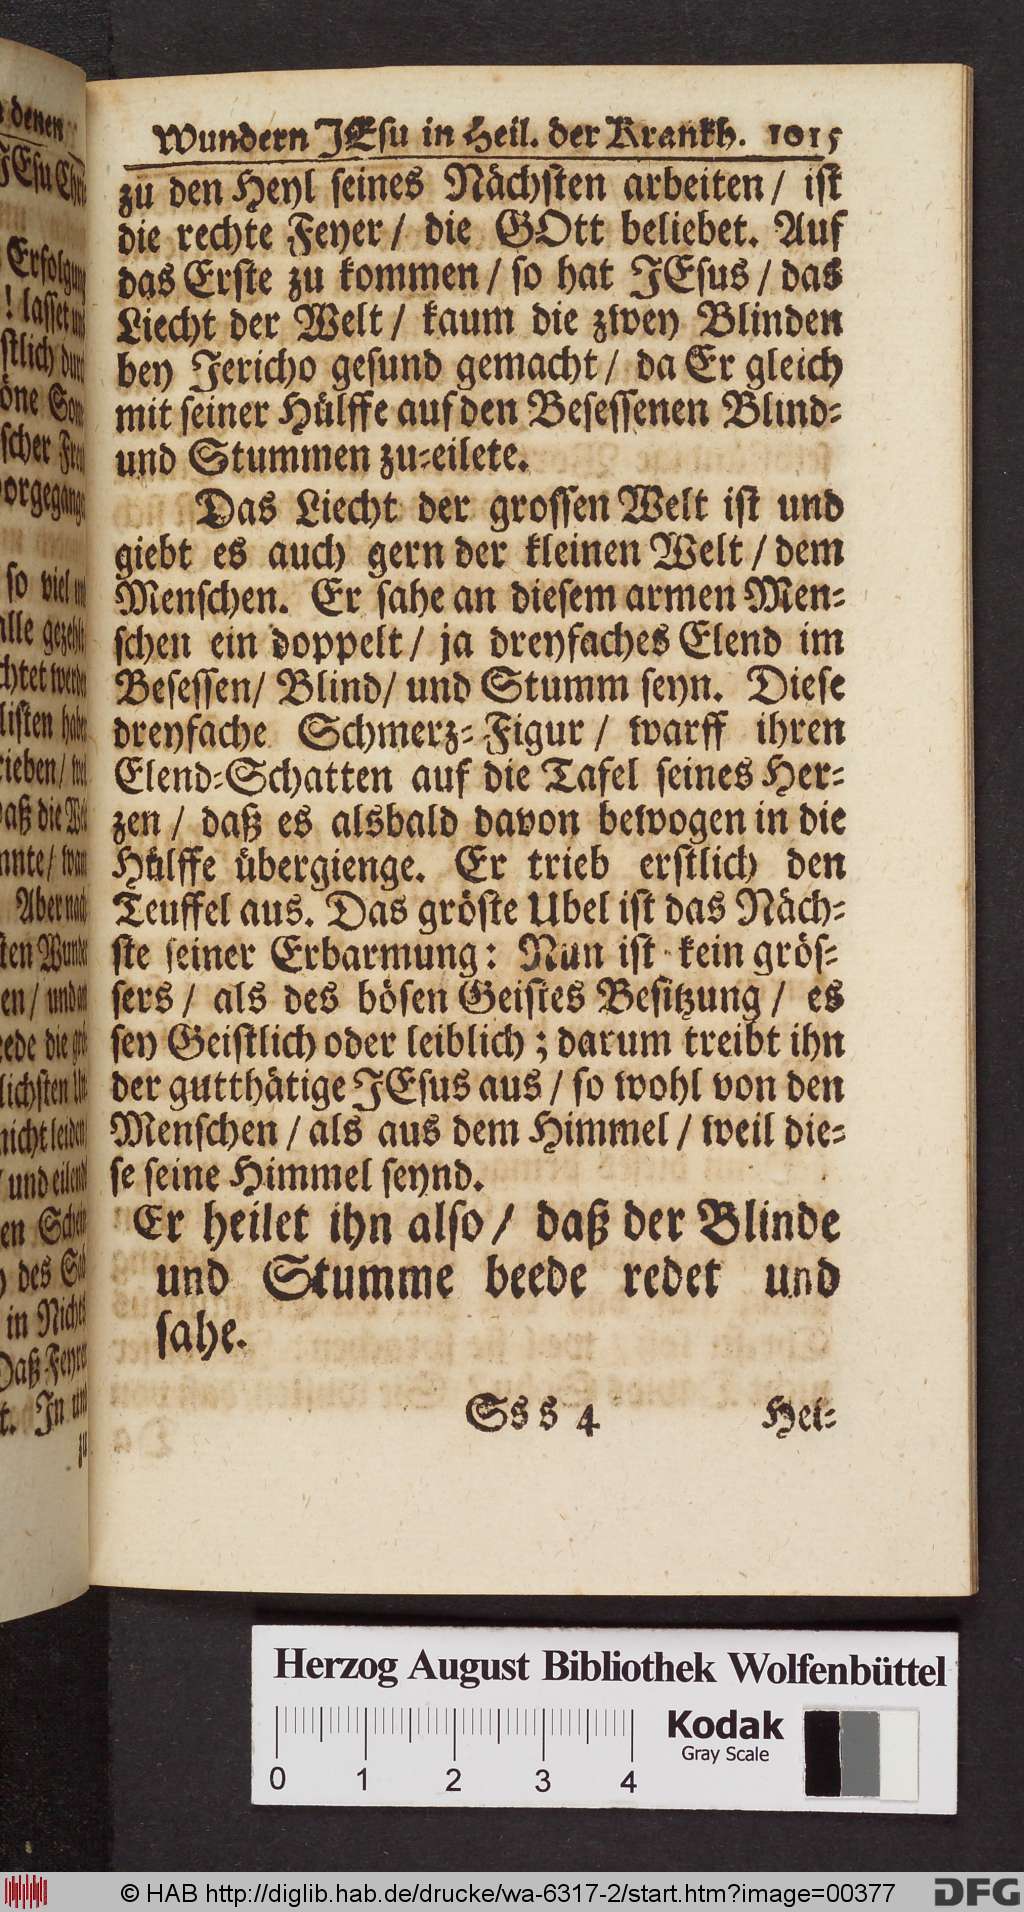 Wundern JEsu in Heil. der Krankh. 1015
zu den Heyl seines Nächsten arbeiten / ist
die rechte Feyer / die GOtt beliebet. Auf
das Erste zu kommen / so hat JEsus / das
Liecht der Welt / kaum die zwey Blinden
bey Jericho gesund gemacht / da Er gleich
mit seiner Hülffe auf den Besessenen Blind-
und Stummen zu-eilete.
Das Liecht der grossen Welt ist und
giebt es auch gern der kleinen Welt / dem
Menschen. Er sahe an diesem armen Men-
schen ein doppelt / ja dreyfaches Elend im
Besessen / Blind / und Stumm seyn. Diese
dreyfache Schmerz-Figur / warff ihren
Elend-Schatten auf die Tafel seines Her-
zen / daß es alsbald davon bewogen in die
Hülffe übergienge. Er trieb erstlich den
Teuffel aus. Das gröste Ubel ist das Näch-
ste seiner Erbarmung: Nun ist kein grös-
sers / als des bösen Geistes Besitzung / es
sey Geistlich oder leiblich; darum treibt ihn
der gutthätige JEsus aus / so wohl von den
Menschen / als aus dem Himmel / weil die-
se seine Himmel seynd.
Er heilet ihn also / daß der Blinde
und Stumme beede redet und
sahe.
Sss 4 Hei-
denen
JEsu Chri
Erfolgung
! lasset und
so viel
alle gezehlt
listen haben
rieben /
daß die Welt
Aber nach
sten Wunder
en / und
lichsten
nicht leiden
und eilend
en Schein
des
in Nichts
Daß Feyren
t. In und
zu
Herzog August Bibliothek Wolfenbüttel
0 1 2 3 4
Kodak
Gray Scale
© HAB http://diglib.hab.de/drucke/wa-6317-2/start.htm?image=00377
DFG